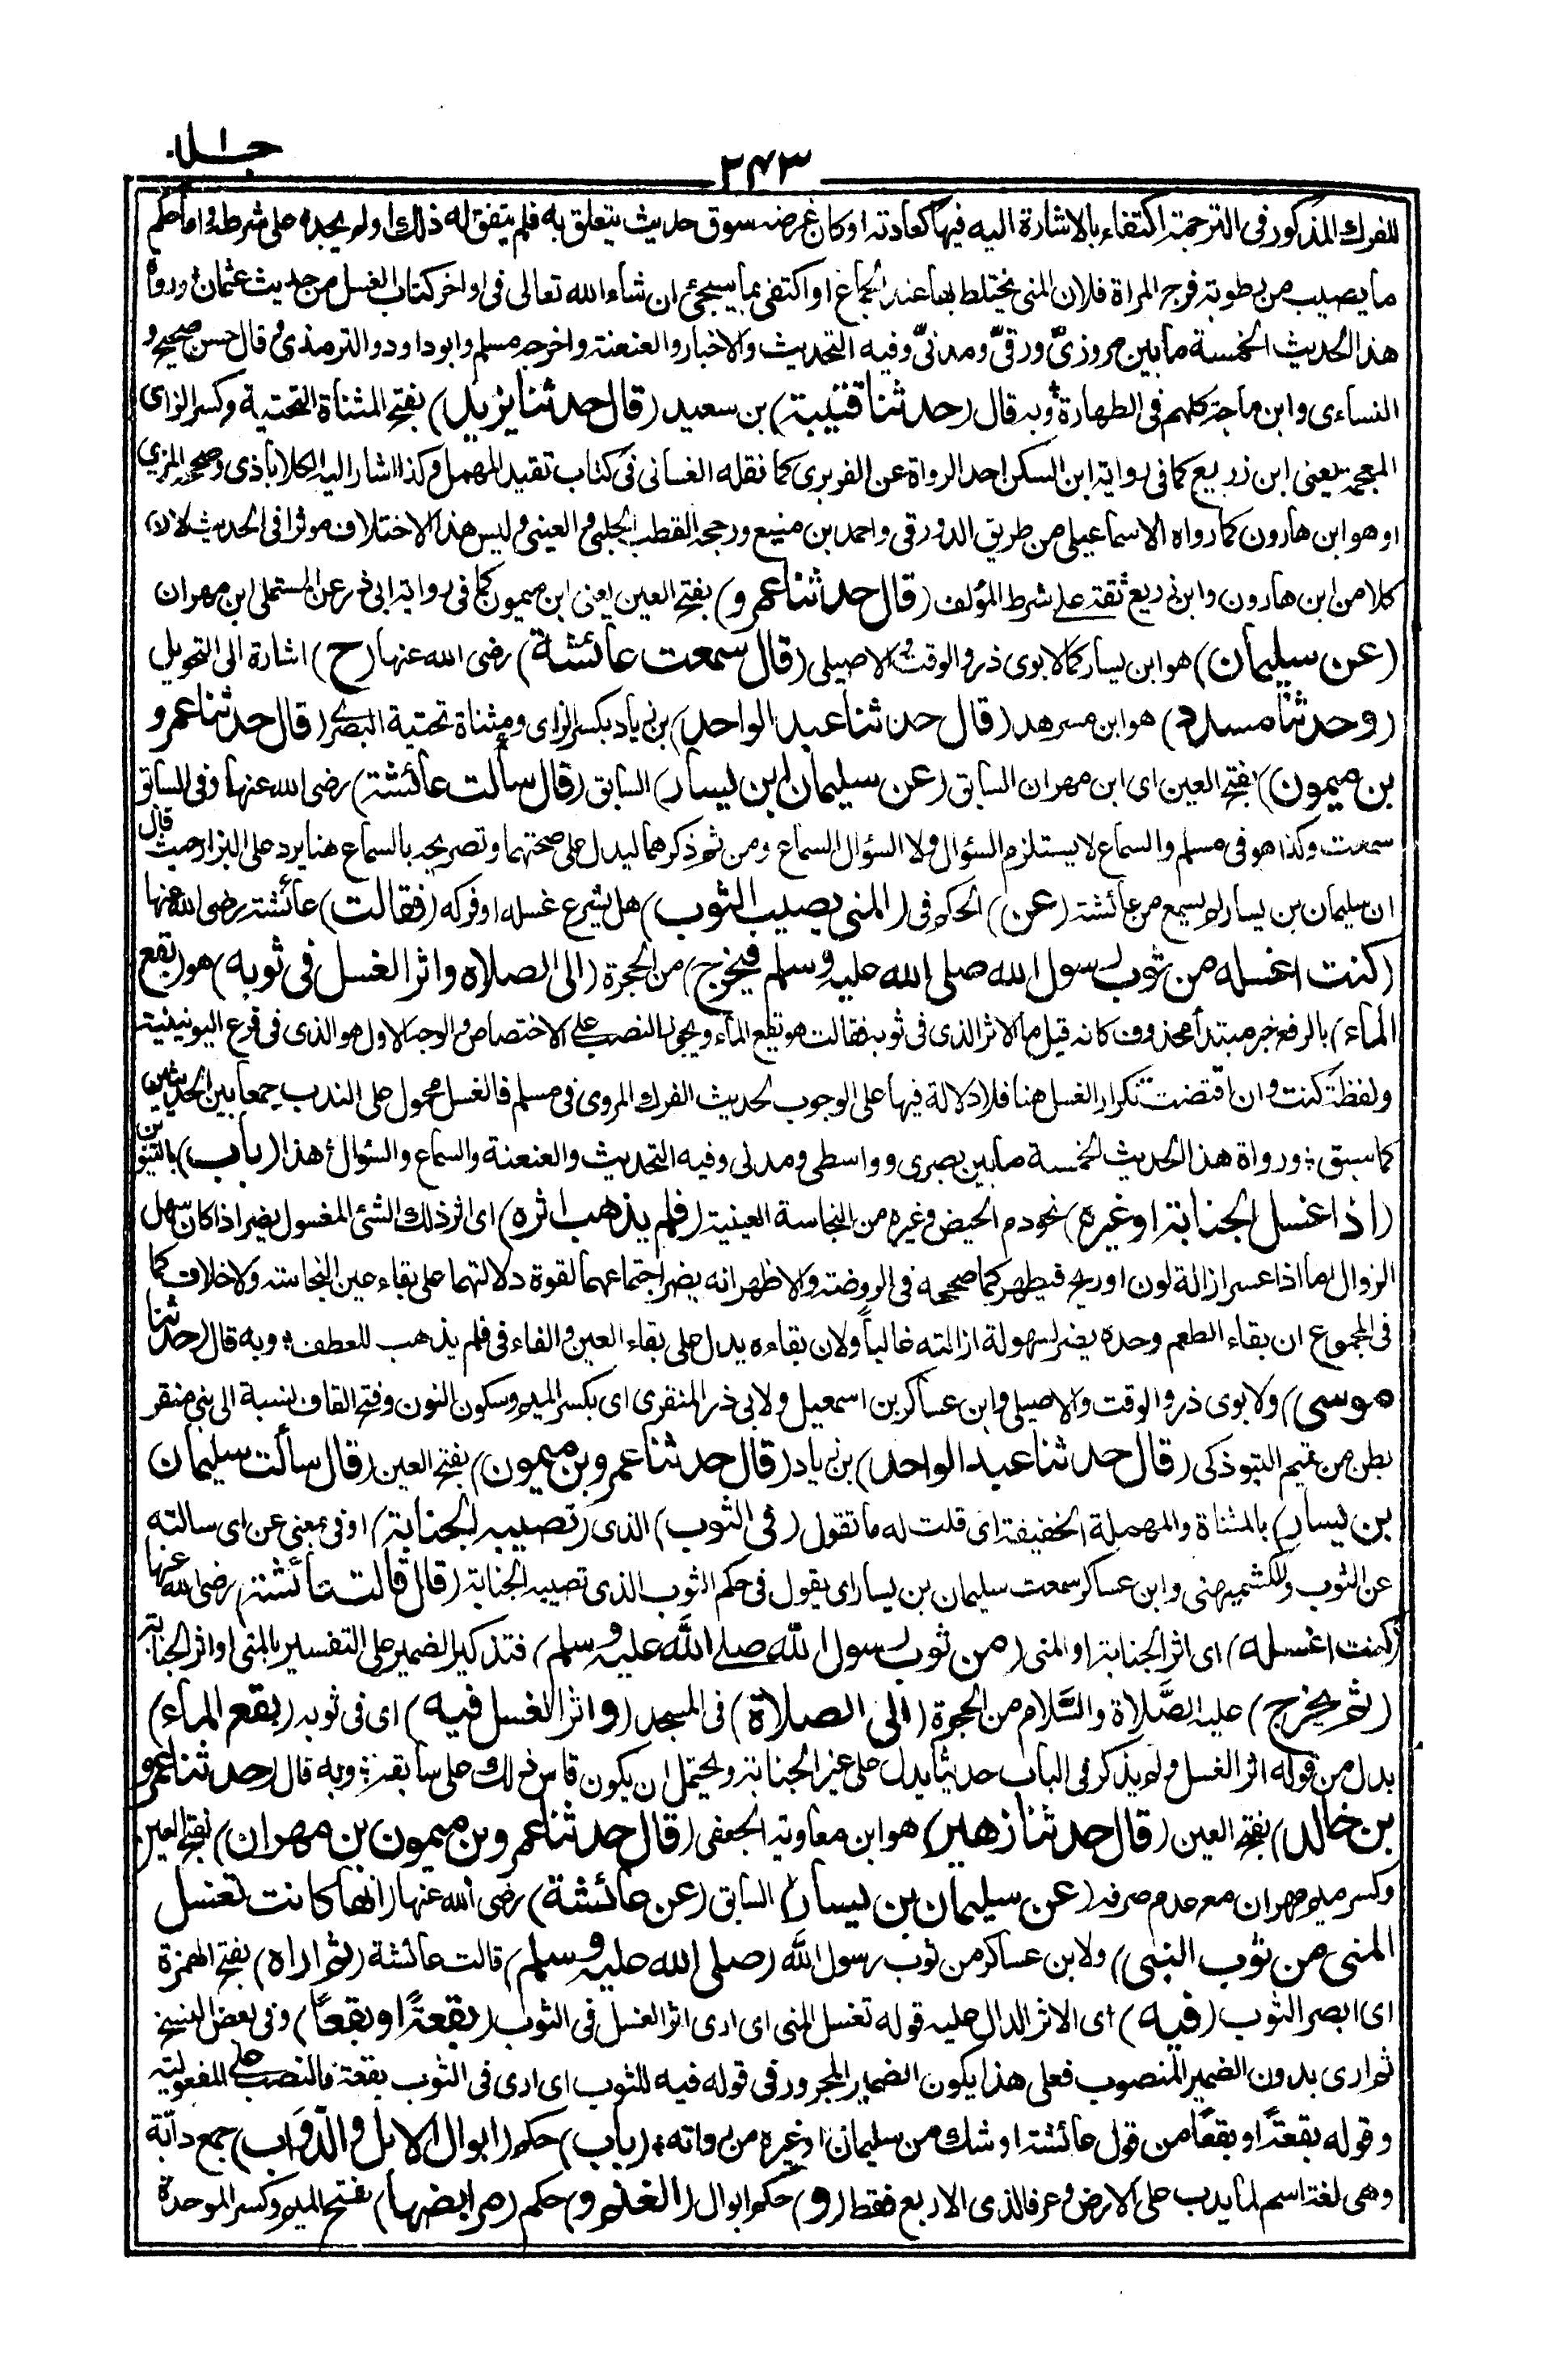 جلد ١
٢٤٣
للفرك المذكور فى الترجمة اكتفاء بالاشارة اليه فيها كعادته اوكان غرضه سوق حديث يتعلق به فلم يتفق له ذلك او لم يجده على شرطه واما حكم
ما يصيب من رطوبة فرج المراة فلان المنى يختلط بها عند الجماع او اكتفى بما سيجئ ان شاء الله تعالى فى اواخر كتاب الغسل من حديث عثمان ورواة
هذا الحديث الخمسة ما بين مروزىّ ورقىّ ومدنىّ وفيه التحديث والاخبار والعنعنة واخرجه مسلم وابو داود والترمذى وقال حسن صحيح و
النساءى وابن ماجة كلهم فى الطهارة وبه قال (حدثنا قتيبة) بن سعيد (قال حدثنا يزيد) بفتح المثناة التحتية وكسر الزاى
المعجمة يعنى ابن زريع كما فى رواية ابن السكن احد الرواة عن الفربرى كما نقله الغسانى فى كتاب تقييد المهمل وكذا اشار اليه الكلاباذى وصححه المزي
او هو ابن هارون كما رواه الاسماعيلى من طريق الدورقى واحمد بن منيع ورجحه القطب الحلبى والعينى وليس هذا الاختلاف موثرا فى الحديث لان
كلا من ابن هارون وابن زريع ثقة على شرط المؤلف (قال حدثنا عمرو) بفتح العين يعنى ابن ميمون كما فى رواية ابى ذر عن المستملى ابن مهران
(عن سليمان) هو ابن يسار كما لابوى ذر والوقت والاصيلى (قال سمعت عائشة) رضى الله عنها (ح) اشارة الى التحويل
(وحدثنا مسدد) هو ابن مسرهد (قال حدثنا عبد الواحد) بن زياد بكسر الزاى ومثناة تحتية البصرى (قال حدثنا عمرو
بن ميمون) بفتح العين اى ابن مهران السابق (عن سليمان بن يسار) السابق (قال سألت عائشة) رضى الله عنها وفى السابق
سمعت وكذا هو فى مسلم والسماع لا يستلزم السؤال ولا السؤال السماع ومن ثم ذكرهما ليدل على صحتهما وتصريحه بالسماع هنا يرد على البزار حيث قال
ان سليمان بن يسار لم يسمع من عائشة (عن) الحكم فى (المنى يصيب الثوب) هل يشرع غسله او فركه (فقالت) عائشة رضى الله عنها
(كنت اغسله من ثوب رسول الله صلى الله عليه وسلم فيخرج) من الحجرة (الى الصلاه واثر الغسل فى ثوبه) هو (بقع
الماء) بالرفع خبر مبتدأ محذوف كانه قيل ما الاثر الذى فى ثوبه فقالت هو بقع الماء ويجوز النصب على الاختصاص والوجه الاول هو الذى فى فرع اليونينية
ولفظة كنت وان اقتضت تكرار الغسل هنا فلا دلالة فيها على الوجوب لحديث الفرك المروى فى مسلم فالغسل محمول على الندب جمعا بين الحديثين
كما سبق ورواة هذا الحديث الخمسة ما بين بصرى وواسطى ومدنى وفيه التحديث والعنعنة والسماع والسؤال هذا (باب) بالتنوين
(اذا غسل الجنابة او غيرها) نحو دم الحيض وغيره من النجاسة العينية (فلم يذهب اثره) اى اثر ذلك الشئ المغسول يضر اذا كان سهل
الزوال اما اذا عسر ازالة لون او ريح فيطهر كما صححه فى الروضة والاظهر انه يضر اجتماعهما لقوة دلالتهما على بقاء عين النجاسة ولا خلاف كما
فى المجموع ان بقاء الطعم وحده يضر لسهولة ازالته غالباً ولان بقاءه يدل على بقاء العين والفاء فى فلم يذهب للعطف وبه قال (حدثنا
موسى) ولابوى ذر والوقت والاصيلى وابن عساكر بن اسمعيل ولابى ذر المنقرى اى بكسر الميم وسكون النون وفتح القاف نسبة الى بنى منقر
بطن من تميم التبوذكى (قال حدثنا عبد الواحد) بن زياد (قال حدثنا عمرو بن ميمون) بفتح العين (قال سألت سليمان
بن يسار) بالمثناة والمهملة الخفيفة اى قلت له ما تقول (فى الثوب) الذى (تصيبه الجنابة) او فى بمعنى عن اى سالته
عن الثوب وللكشميهنى وابن عساكر سمعت سليمان بن يسار اى يقول فى حكم الثوب الذى تصيبه الجنابة (قال قالت عائشة) رضى الله عنها
(كنت اغسله) اى اثر الجنابة او المنى (من ثوب رسول الله صلى الله عليه وسلم) فتذكير الضمير على التفسير بالمنى او اثر الجنابة
(ثم يخرج) عليه الصَّلاة والسَّلام من الحجرة (الى الصلاة) فى المسجد (واثر الغسل فيه) اى فى ثوبه (بقع الماء)
بدل من قوله اثر الغسل ولم يذكر فى الباب حديثا يدل على غير الجنابة ويحتمل ان يكون قاس ذلك على سابقه وبه قال (حدثنا عمرو
بن خالد) بفتح العين (قال حدثنا زهير) هو ابن معاوية الجعفى (قال حدثنا عمرو بن ميمون بن مهران) بفتح العين
وكسر ميم مهران مع عدم صرفه (عن سليمان بن يسار) السابق (عن عائشة) رضى الله عنها (انها كانت تغسل
المنى من ثوب النبى) ولابن عساكر من ثوب رسول الله (صلى الله عليه وسلم) قالت عائشة (ثم اراه) بفتح الهمزة
اى ابصر الثوب (فيه) اى الاثر الدال عليه قوله تغسل المنى اى ارى اثر الغسل فى الثوب (بقعةً او بقعاً) وفى بعض النسخ
ثم ارى بدون الضمير المنصوب فعلى هذا يكون الضمير المجرور فى قوله فيه للثوب اى ارى فى الثوب بقعة فالنصب على المفعولية
وقوله بقعةً او بقعًا من قول عائشة او شك من سليمان او غيره من رواته (باب) حكم (ابوال الابل والدَّوَاب) جمع دابّة
وهى لغة اسم لما يدب على الارض وعرفا لذى الاربع فقط (و) حكم ابوال (الغنم و) حكم (مرابضها) بفتح الميم وكسر الموحدة